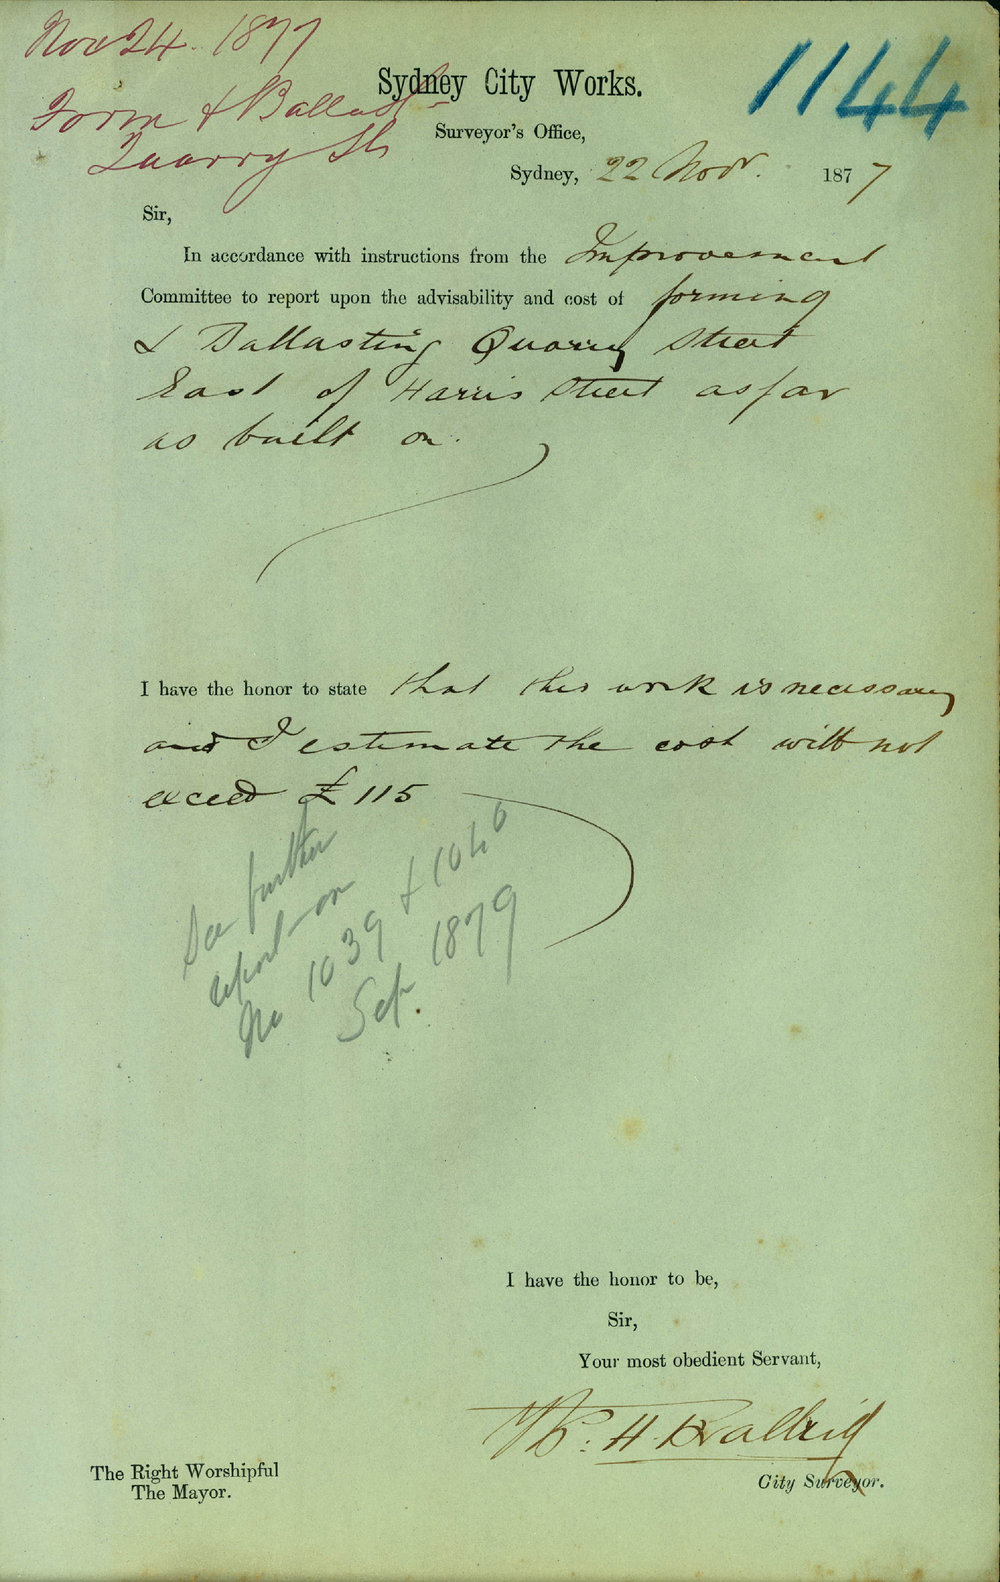 Nov 24. 1877
Form & Ballast
Quarry St
1144
Sydney City Works.
Surveyor's Office,
Sydney, 22 Novr. 1877
Sir,
In accordance with instructions from the Improvement
Committee to report upon the advisability and cost of forming
& Ballasting Quarry Street
East of Harris Street as far
as built on.
I have the honor to state that this work is necessary
and I estimate the cost will not
exceed £115
See further
report on
No 1039 & 1040
Sep. 1879
I have the honor to be,
Sir,
Your most obedient Servant,
City Surveyor.
The Right Worshipful
The Mayor.